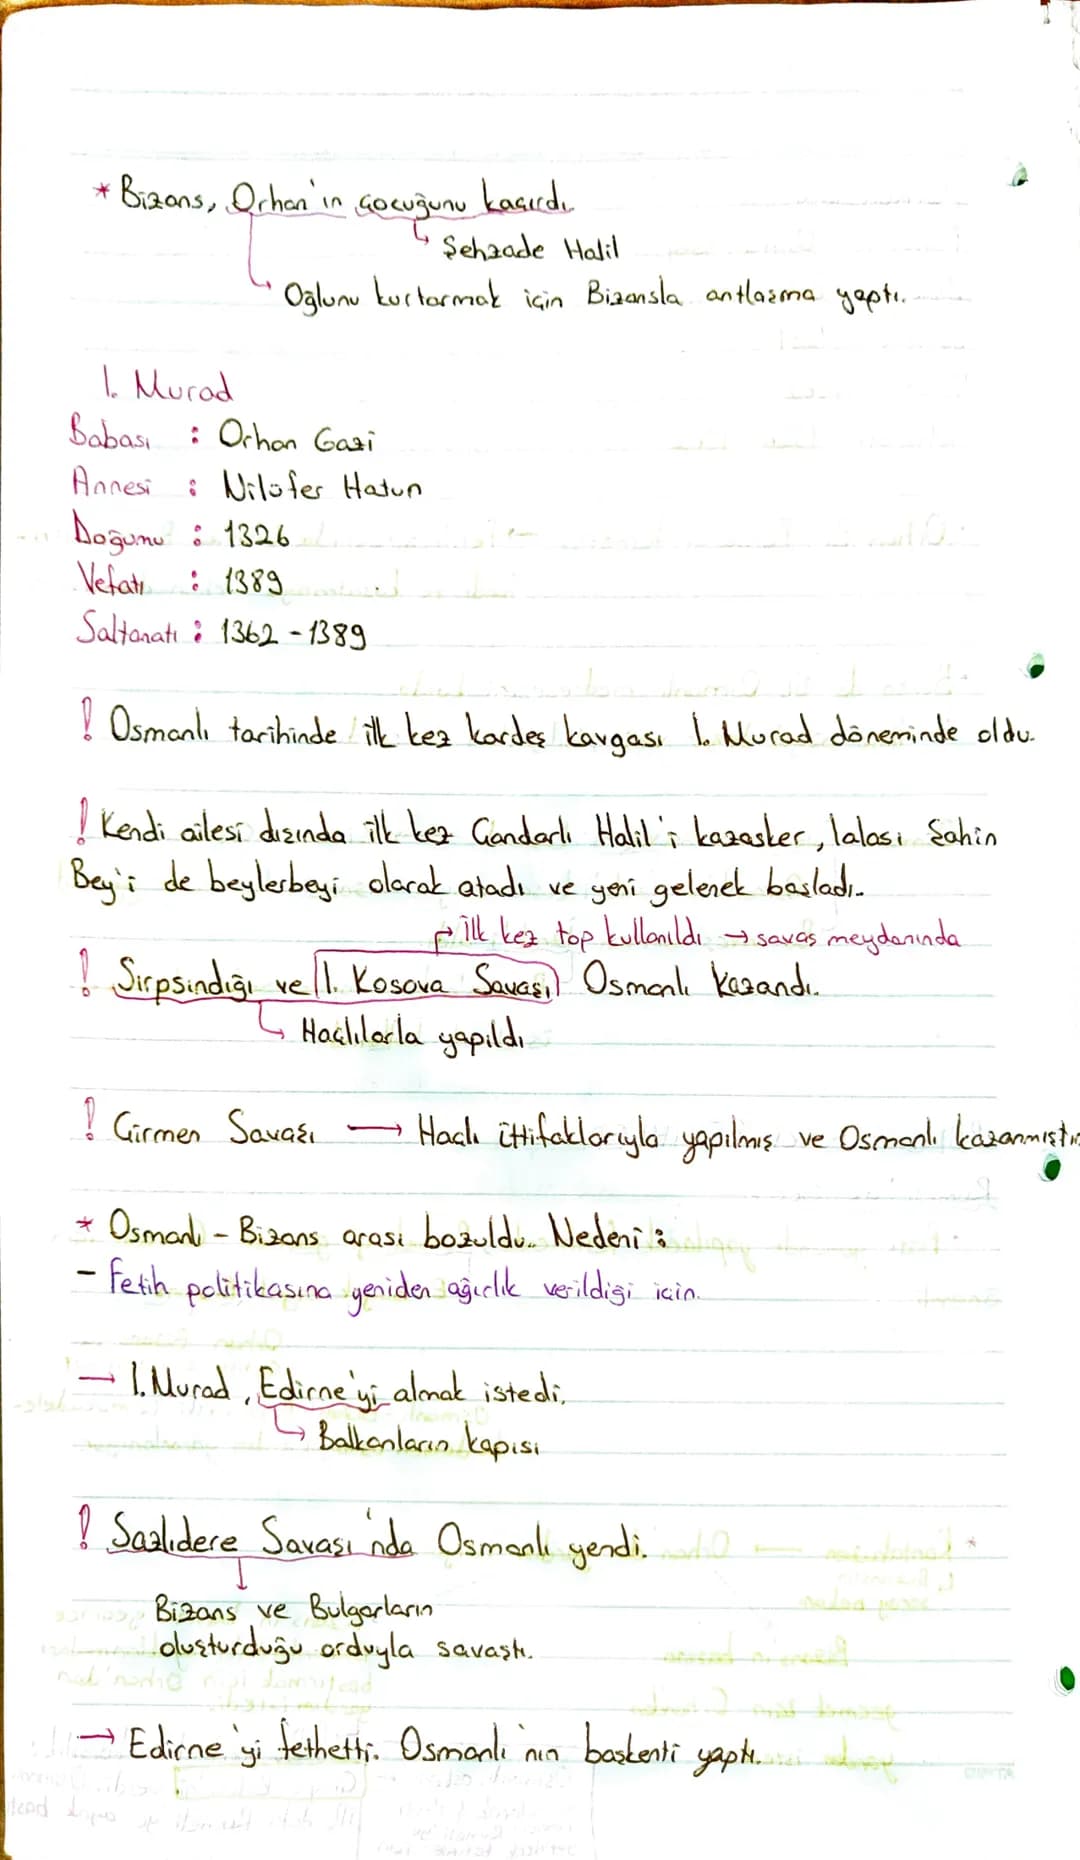 * Bizans, Orhan'ın çocuğunu kaçırdı.
↳ Şehzade Halil
↳ Oğlunu kurtarmak için Bizansla antlaşma yaptı.
I. Murad
Babası : Orhan Gazi
Annesi : Nilüfer Hatun
Doğumu : 1326
Vefatı : 1389
Saltanatı : 1362 - 1389
! Osmanlı tarihinde ilk kez kardeş kavgası I. Murad döneminde oldu.
! Kendi ailesi dışında ilk kez Çandarlı Halil'i kazasker, lalası Şahin
Bey'i de beylerbeyi olarak atadı ve yeni gelenek başladı.
↱ ilk kez top kullanıldı → savaş meydanında
! Sırpsındığı ve I. Kosova Savaşı Osmanlı kazandı.
↳ Haçlılarla yapıldı
! Çirmen Savaşı → Haçlı ittifaklarıyla yapılmış ve Osmanlı kazanmıştır
* Osmanlı - Bizans arası bozuldu. Nedeni :
- Fetih politikasına yeniden ağırlık verildiği için.
→ I. Murad, Edirne'yi almak istedi.
↳ Balkanların kapısı
! Sazlıdere Savaşı'nda Osmanlı yendi.
↓
Bizans ve Bulgarların
oluşturduğu orduyla savaştı.
→ Edirne'yi fethetti. Osmanlı'nın başkenti yaptı.